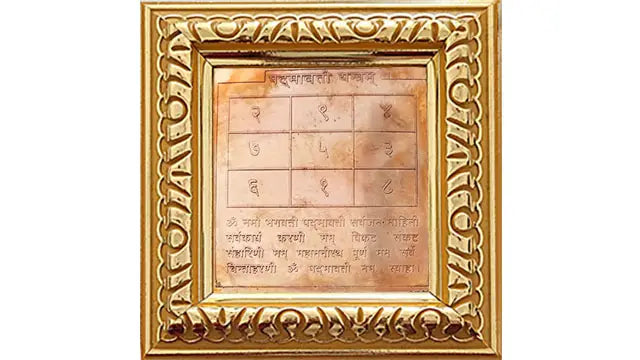 पद्मावती यन्त्रम्
२ ९ ४
७ ५ ३
६ १ ८
ॐ नमो भगवती पद्मावती सर्वजन मोहिनी
सर्वकार्य करणी मम विकट संकट
संहारिणी मम महामनोरथ पूर्ण मम सर्व
चिन्ताहरणी ॐ पद्मावती नमः स्वाहा।